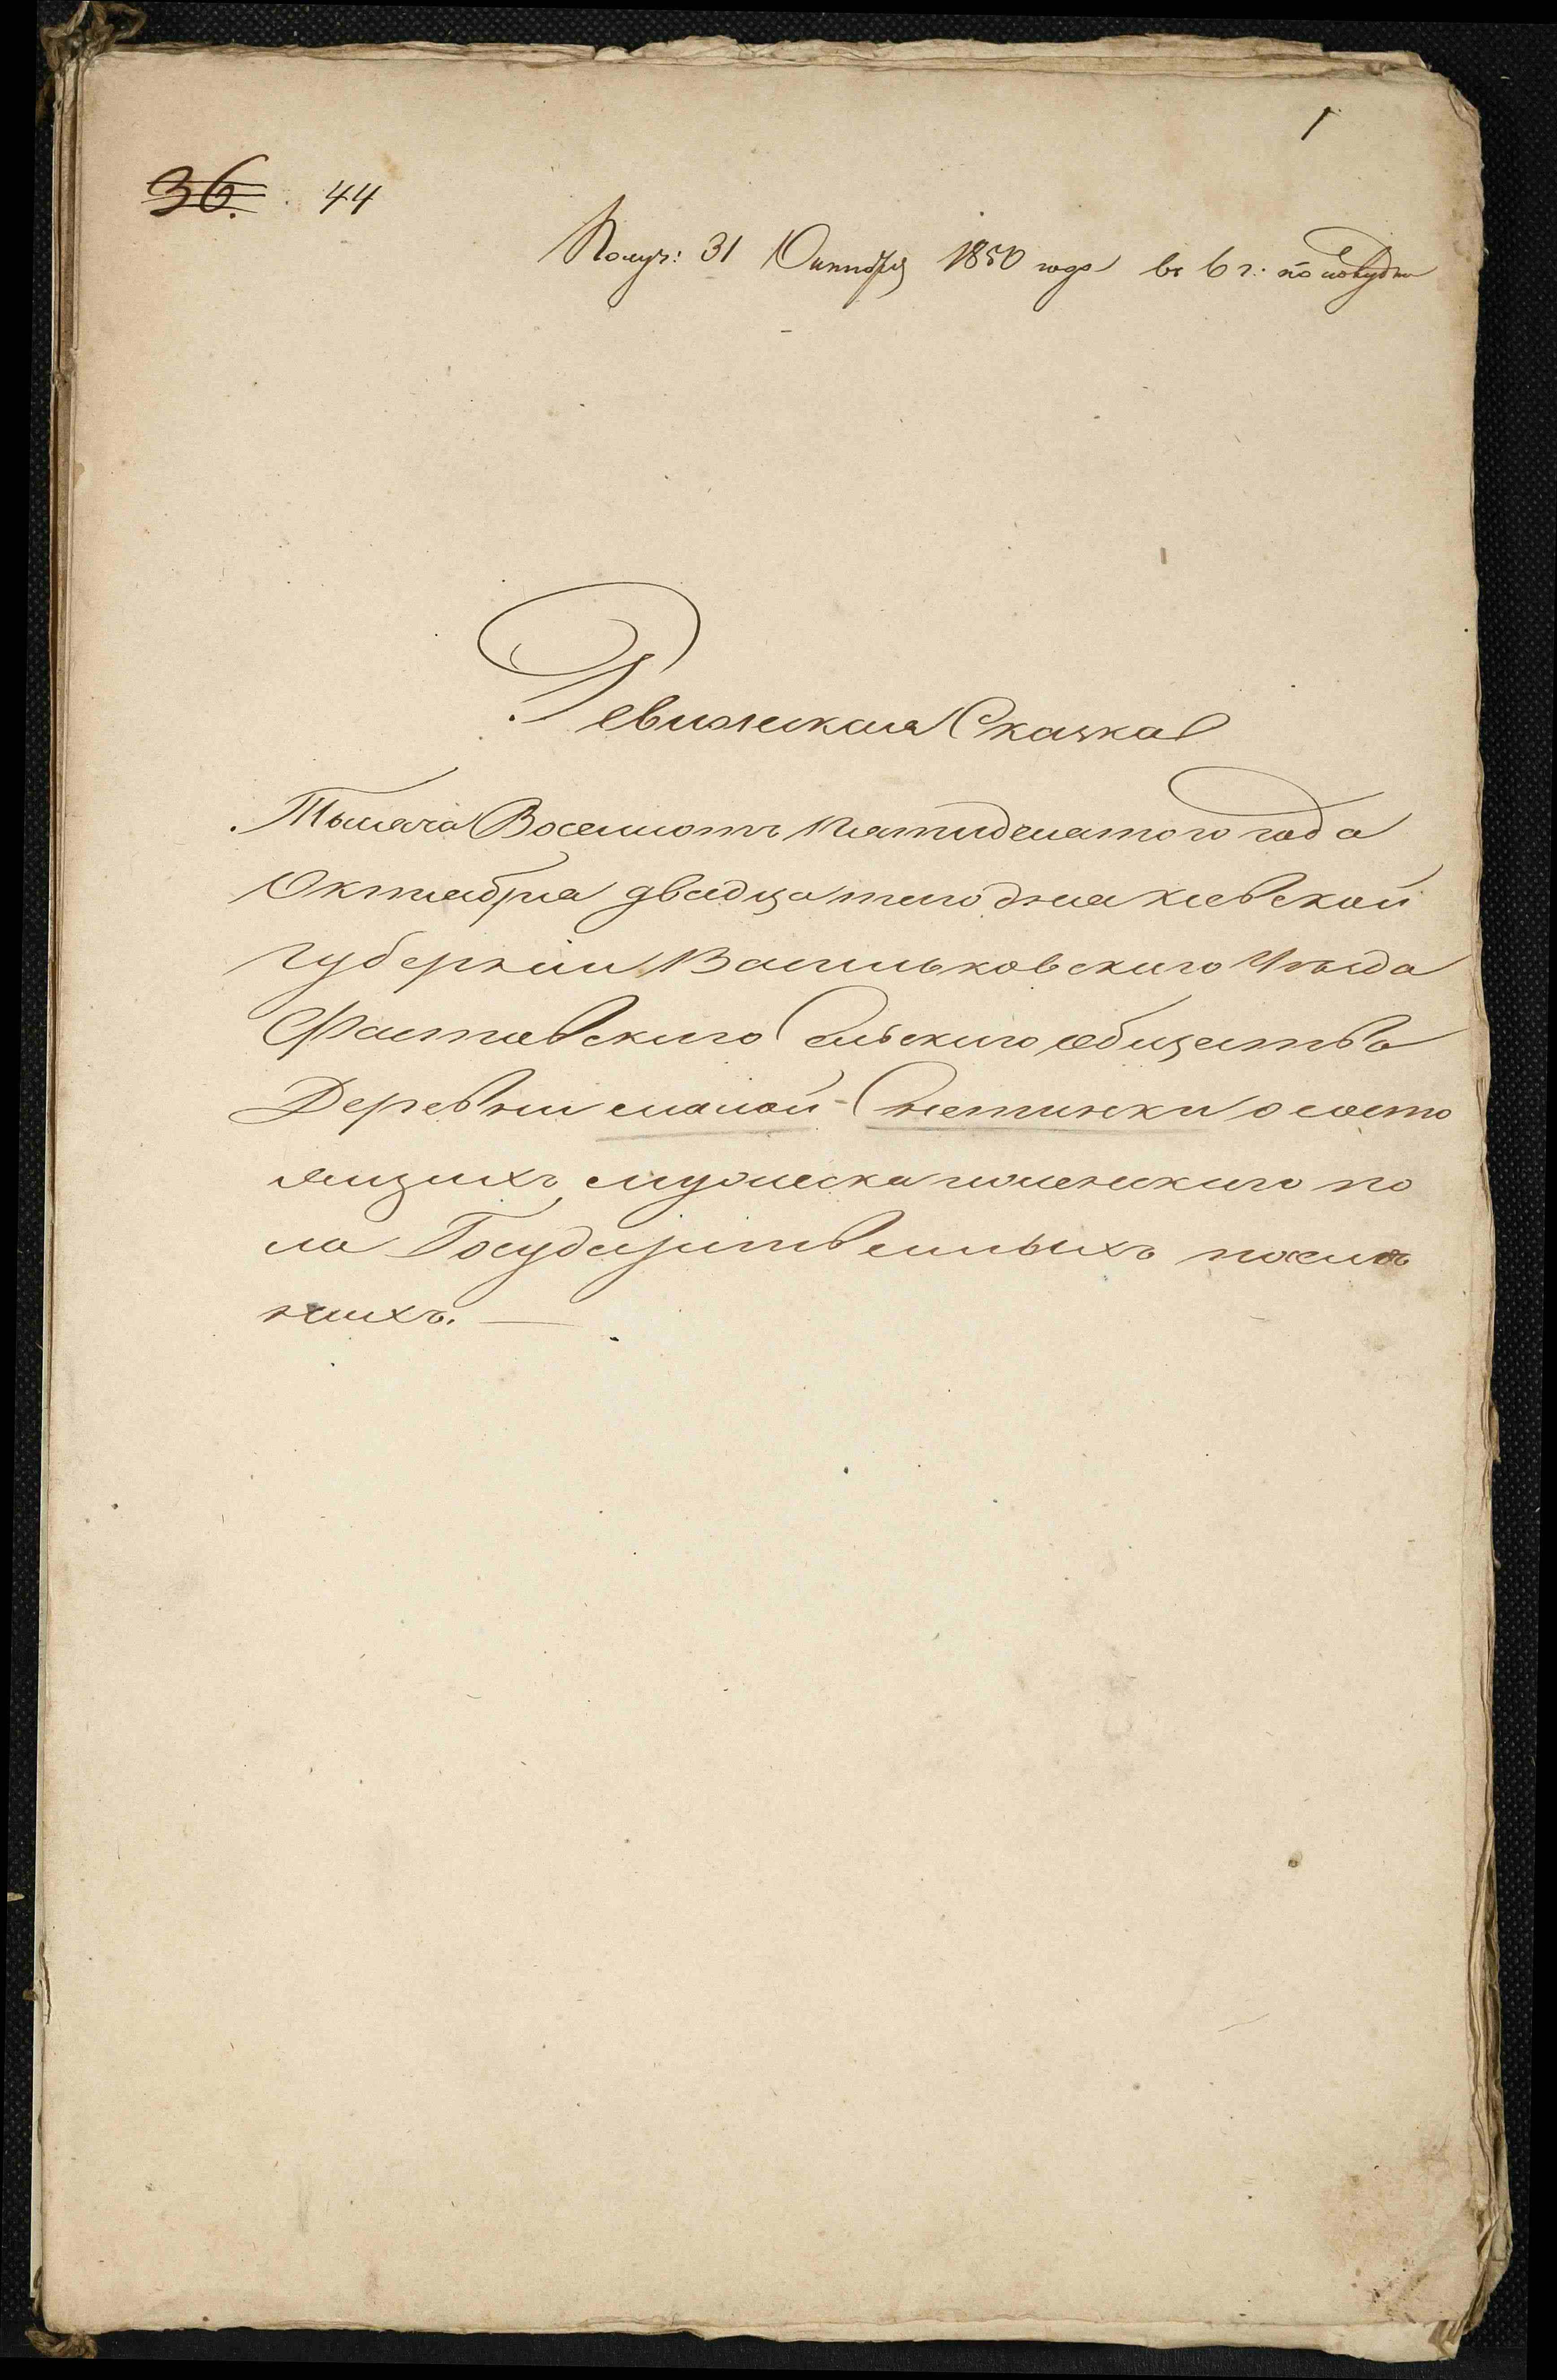 1
36. 44
Получ: 31 Октября 1850 года въ 6 ч: по полудни
Ревижская Сказка
Тысяча Восемьсотъ Пятидесятого года
Октиября двадцатого дня киевской
губернии Васильковского Уезда
Фастовского сельского общества
Деревни малой-Снетинки о состо
ящихъ мужеска и женского по
ла Государственныхъ поселя
нихъ.